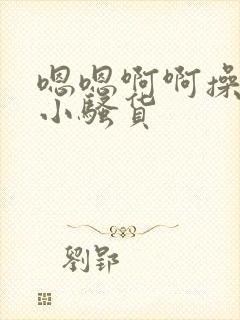 嗯嗯啊啊操
小骚货
劉郢